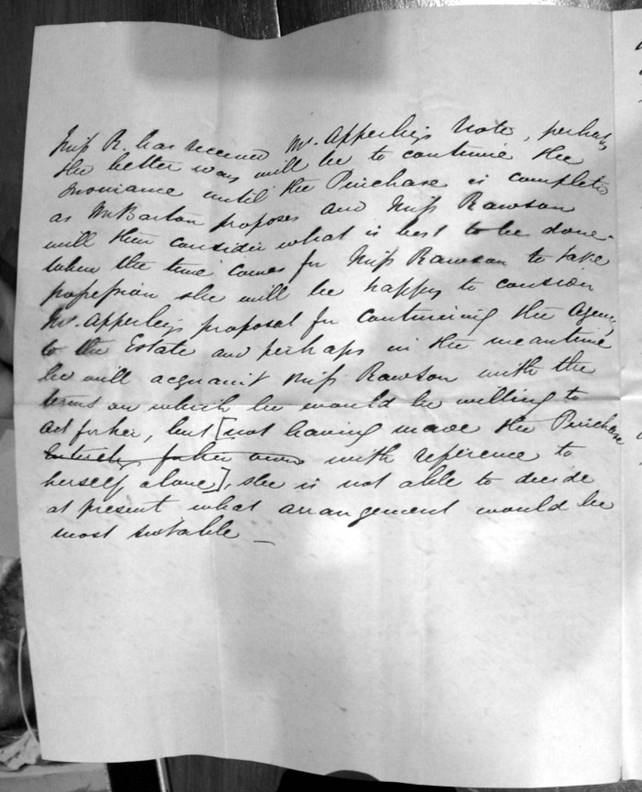 Miss R. has received Mr. Apperley's Note, perhaps
the better way will be to continue the
Insurance until the Purchase is complete
as Mr Barton proposes and Miss Rawson
will then consider what is best to be done.
When the time comes for Miss Rawson to take
possession she will be happy to consider
Mr. Apperley's proposal for continuing the Agency
to the Estate and perhaps in the meantime
he will acquaint Miss Rawson with the
terms on which he would be willing to
act for her, but [not having made the Purchase
entirely for her own with reference to
herself alone], she is not able to decide
at present what arrangement would be
most suitable —